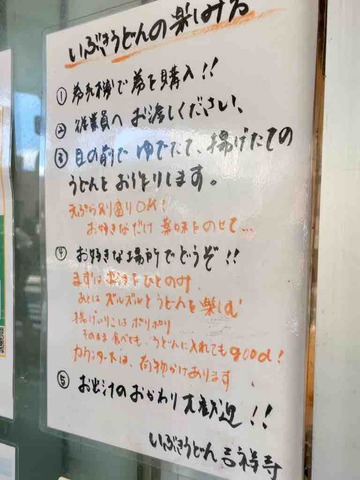 いぶきうどんの楽しみ方
① 券売機で券を購入!!
② 従業員へお渡しください、
③ 目の前でゆでたて、揚げたての
うどんをお作りします。
天ぷら別盛りOK!
お好きなだけ薬味をのせて…
④ お好きな場所でどうぞ!!
まずはお汁をひとのみ
あとはズルズルとうどんを楽しむ
揚げいりこはポリポリ
そのまま食べても、うどんに入れてもgood!
カウンター下は、荷物かけあります
⑤ お出汁のおかわり大歓迎!!
いぶきうどん吉祥寺